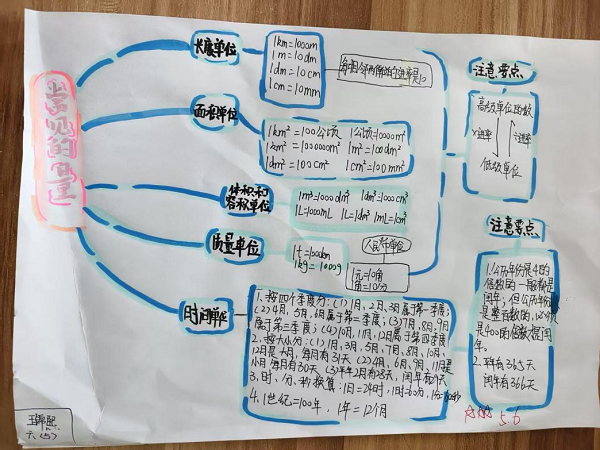 常见的量
长度单位
1km=1000m
1m=10dm
1dm=10cm
1cm=10mm
每相邻两个
面积单位
1km²=100公顷 1公顷=10000m²
1km²=1000000m² 1m²=100dm²
1dm²=100cm² 1cm²=100mm²
体积和
容积单位
1m³=1000dm³ 1dm³=1000cm³
1L=1000mL 1L=1dm³ 1mL=1cm³
质量单位
1t=1000
1kg=1000g
人民币单位
1元=10角
1角=10分
时间单位
1、按四个季度分:(1)1月、2月、3月属于第一季度;
(2)4月、5月、6月属于第二季度;(3)7月、8月、9月
属于第三季度;(4)10月、11月、12月属于第四季度
2、按大小分:(1)1月、3月、5月、7月、8月、10月、
12月是大月,每月有31天(2)4月、6月、9月、11月是
小月每月有30天(3)平年2月有28天,闰年有29天
3、时、分、秒换算:1日=24时,1时=60分,1分=60秒
4、1世纪=100年,1年=12个月
注意要点
高级单位的数
×进率 ÷进率
低级单位
注意要点
1.公历年份是4的
倍数的一般都是
闰年,但公历年份
是整百数的,必须
是400的倍数是闰
年。
2.平年有365天
闰年有366天
5.6
六(5)